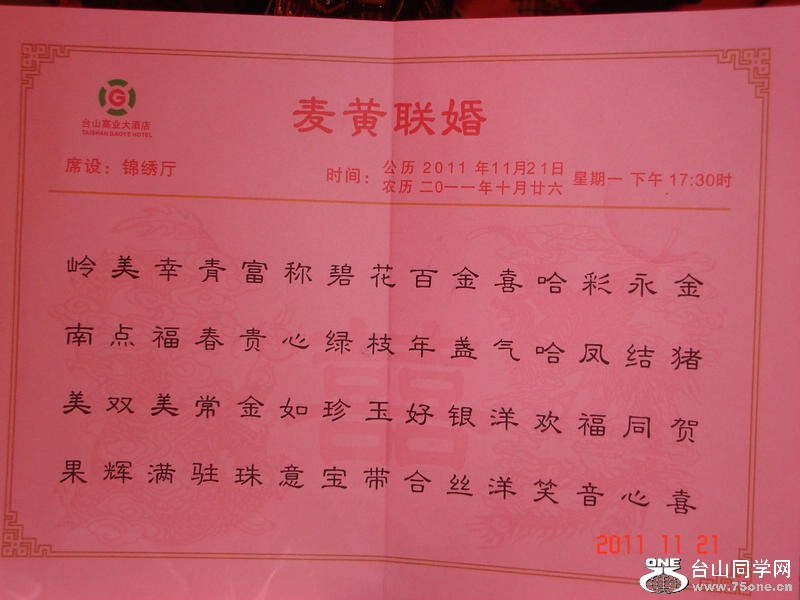 G
台山高业大酒店
TAISHAN GAOYE HOTEL
麦黄联婚
席设：锦绣厅
时间：公历 2011 年11月21日 星期一 下午 17:30时
农历 二0一一年十月廿六
金猪贺喜
永结同心
彩凤福音
哈哈欢笑
喜气洋洋
金盏银丝
百年好合
花枝玉带
碧绿珍宝
称心如意
富贵金珠
青春常驻
幸福美满
美点双辉
岭南美果
囍
2011 11 21
ONE 台山同学网
www.75one.cn